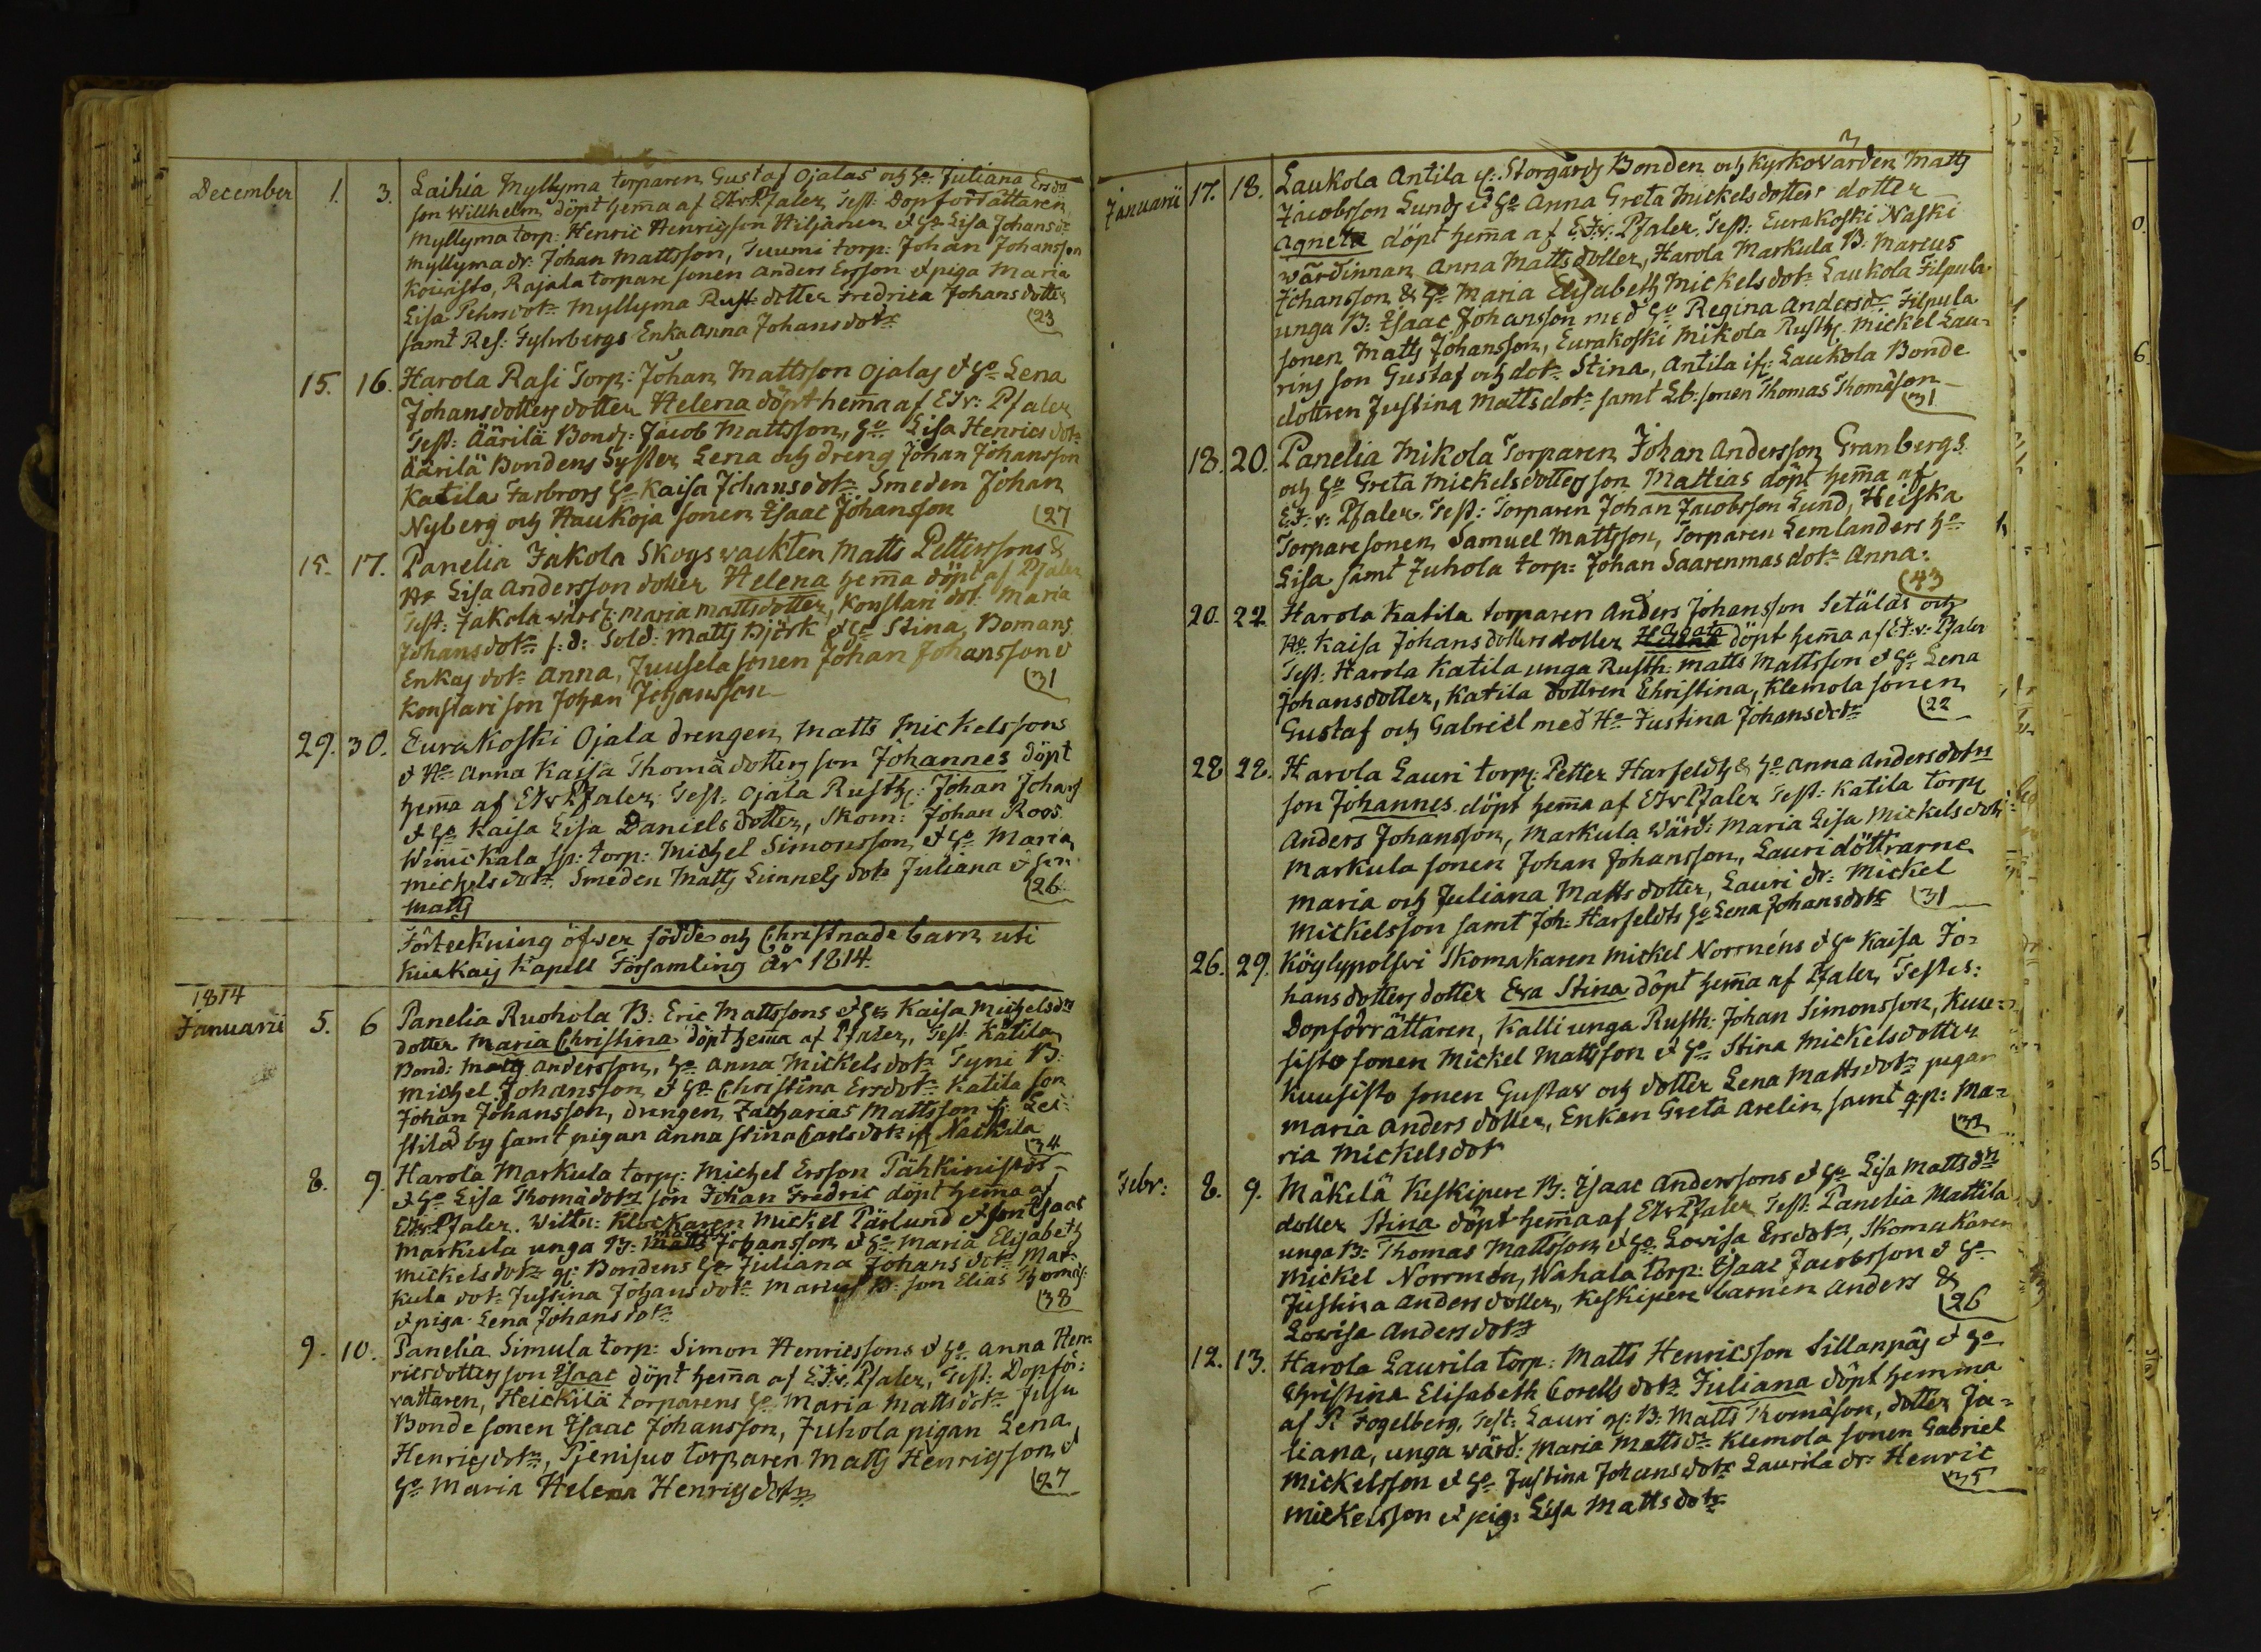 December 1. 3. Laihia Myllyma torparen Gustaf Ojalas och Ho Juliana Ersdr
son Willhelm döpt hema af EIvPfaler Test: Dopförrättaren
Myllyma torp: Henric Henricsson Hiljanen et Ho Lisa Johansdr
Myllyma dr: Johan Mattsson, Tuumi torp: Johan Johansson
Koivisto, Rajala torpare sonen Anders Ersson et piga Maria
Lisa Pehrsdotr Myllyma Rust dotter Fredrica Johansdotter
samt Res: Enka Anna Johansdotr (23
15. 16. Harola Rasi Torp: Johan Mattsson Ojalas et Ho Lena
Johansdotters dotter Helena döpt hema af EIv: Pfaler
Test: Äärilä Bond: Jacob Mattsson, Ho Lisa Henrics dotr
Äärilä Bondens Syster Lena och dreng Johan Johansson
Katila Farbrors Ho Kaisa Johansdotr Smeden Johan
Nyberg och Haukoja sonen Isaac Johansson (27
15. 17. Panelia Jakola Skogsvackten Matts Petterssons &
Ho Lisa Andersson dotter Helena hema döpt af Pfaler
Test: Jakola värd: Maria Mattsdotter, Konstari dot Maria
Johansdotr s: d: Sold: Matts Björk et Ho Stina, Bomans
Enkas dotr Anna, Juusela sonen Johan Johansson &
Konstari son Johan Johansson (31
29. 30. Eurakoski Ojala drengen Matts Mickelssons
et Ho Anna Kaisa Thomädotters son Johannes döpt
hema af EIvPfaler Test: Ojala Rusth: Johan Johans
et Ho Kaisa Lisa Danielsdotter, Skom: Johan Roos
Winickala sp: torp: Michel Simonsson et Ho Maria
Michelsdotr Smeden Matts Linnels dotr Juliana et son
Matts (26
Förteckning öfwer födde och Christnade barn uti
Kiukais Kapell Församling år 1814.
1814
Januarii 5. 6 Panelia Ruohola B: Eric Mattssons et Ho Kaisa Michelsdr
dotter Maria Christina döpt hema af Pfaler, Test Katila
Bond: Matts Andersson, Ho Anna Mickelsdotr Tyni B:
Michel Johansson et Ho Christina Ersdotr Katila son
Johan Johansson, drengen Zacharias Mattsson fr Lei-
stilä by samt pigan Anna Stina Carlsdotr if Nackila (34
8. 9. Harola Markula torp: Michel Ersson Pähkinistös
et Ho Lisa Thomädotr son Johan Fredric döpt hema af
EIvPfaler. Wittn: Klockaren Mickel Pärlund et son Isaac
Markula unga B: Johansson et Ho Maria Elisabeth
Mickelsdotr gl: Bondens Ho Juliana Johansdotr Mar-
kula dotr Justina Johansdotr Marcus B: son Elias Thomäs:
et piga Lena Johansdotr (38
9. 10. Panelia Simula torp: Simon Henricssons et Ho Anna Hen-
ricsdotters son Isaac döpt hema af E.I.v. Pfaler, Test: Dopför-
rättaren, Heickilä torparens Ho Maria Mattsdotr Jussu
Bonde sonen Isaac Johansson, Juhola pigan Lena
Henricsdotr, Pienisuo torparen Matts Henricsson et
Ho Maria Helena Henricsdotr (27
3
Januarii 17. 18. Laukola Antila el: Storgårds Bonden och Kyrkovärden Matts
Jacobsson Lunds et Ho Anna Greta Mickelsdotters dotter
Agneta döpt hema af E.I.v: Pfaler. Test: Eurakoski Naski
wärdinnan Anna Mattsdotter, Harola Markula B: Marcus
Johansson & Ho Maria Elisabeth Mickelsdotr Laukola Filpula
unga B: Isaac Johansson med Ho Regina Andersdr Filpula
sonen Matts Johansson, Eurakoski Mikola Rusth: Mickel Lau-
rins son Gustaf och dotr Stina, Antila if: Laukola Bonde
dottren Justina Mattsdotr samt Lb: sonen Thomas Thomäson (31
18. 20. Panelia Mikola Torparen Johan Andersson Granbergs
och Ho Greta Mickelsdotters son Mattias döpt hema af
E.I.v. Pfaler. Test: Torparen Johan Jacobsson Lund, Heiska
Torpare sonen Samuel Mattsson, Torparen Lemlanders Ho
Lisa samt Juhola torp: Johan Saarenmas dotr Anna. (43
20. 22 Harola Katila torparen Anders Johansson Setäläs och
Ho Kaisa Johansdotters dotter Agata döpt hema af E.I.v. Pfaler
Test: Harola Katila unga Rusth: Matts Mattsson et Ho Lena
Johansdotter, Katila dottren Christina, Klemola sonen
Gustaf och Gabriel med Ho Justina Johansdotr (22
28 28. Harola Lauri torp: Petter Harfeldts & Ho Anna Andersdotrs
son Johannes döpt hema af EIvPfaler Test: Katila torp
Anders Johansson, Markula Wärd: Maria Lisa Mickelsdotr
Markula sonen Johan Johansson, Lauri döttrarne
Maria och Juliana Matts dotter, Lauri dr: Mickel
Mickelsson samt Joh: Harfeldts Ho Lena Johansdotr (31
26. 29. Köylypolvi Skomakaren Mickel Norrnéns et Ho Kaisa Jo-
hansdotters dotter Eva Stina döpt hema af Pfaler, Testes:
Dopförrättaren, Kalli unga Rusth: Johan Simonsson, Kuu-
sisto sonen Mickel Mattsson et Ho Stina Mickelsdotter
Kuusisto sonen Gustav och dotter Lena Mattsdotr pigan
Maria Andersdotter, Enkan Greta Arelin samt q.p: Ma-
ria Mickelsdotr (32
Febr: 8. 9. Mäkelä Keskipere B: Isaac Anderssons et Ho Lisa Mattsdrs
dotter Stina döpt hema af EIvPfaler Test: Panelia Mattila
unga B: Thomas Mattsson et Ho Lovisa Ersdotr, Skomakaren
Mickel Norrmén, Wahala torp: Isaac Jacobsson et Ho
Justina Andersdotter, Keskipere barnen Anders &
Lovisa Andersdotr (26
12. 13. Harola Laurila torp: Matts Henricsson Sillanpäs et Ho
Christina Elisabeth Corells dotr Juliana döpt hemma
af P. Fogelberg, Test: Lauri gl: B: Matts Thomäson, dotter Ju-
liana, unga wärd: Maria Mattsdr Klemola sonen Gabriel
Mickelsson et Ho Justina Johansdotr Laurila dr Henric
Mickelsson et pig: Lisa Mattsdotr (35